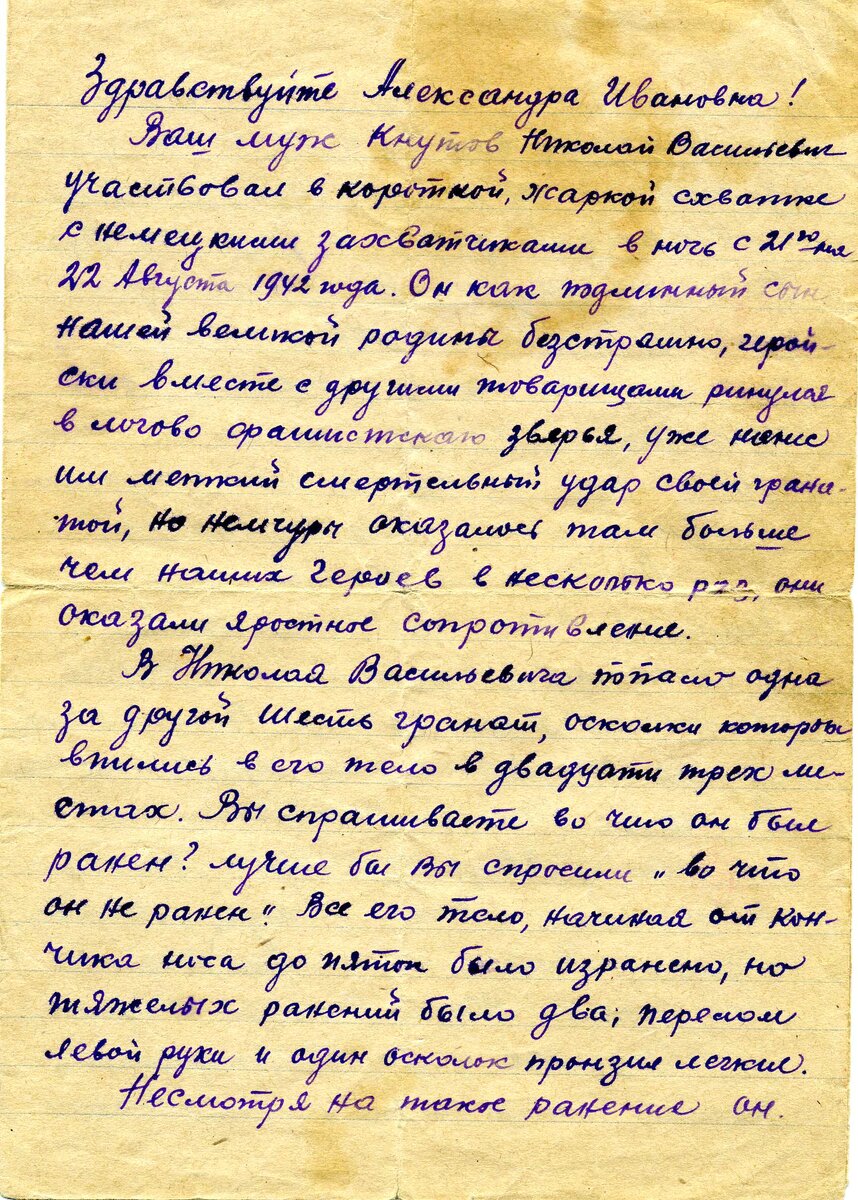 Здравствуйте Александра Ивановна!
Ваш муж Кнутов Николай Васильевич
участвовал в короткой, жаркой схватке
с немецкими захватчиками в ночь с 21го на
22 Августа 1942 года. Он как подлинный сын
нашей великой родины безстрашно, герой-
ски вместе с другими товарищами ринулся
в логово фашистскаю зверья, уже нанес
им меткий смертельный удар своей грана-
той, но немчуры оказалось там больше
чем наших героев в несколько раз, они
оказали яростное сопротивление.
В Николая Васильевича попало одна
за другой шесть гранат, осколки которых
впились в его тело в двадцати трех ме-
стах. Вы спрашиваете во что он был
ранен? лучше бы Вы спросили „во что
он не ранен". Все его тело, начиная от кон-
чика носа до пяток было изранено, но
тяжелых ранений было два; перелом
левой руки и один осколок пронзил легкие.
Несмотря на такое ранение он.